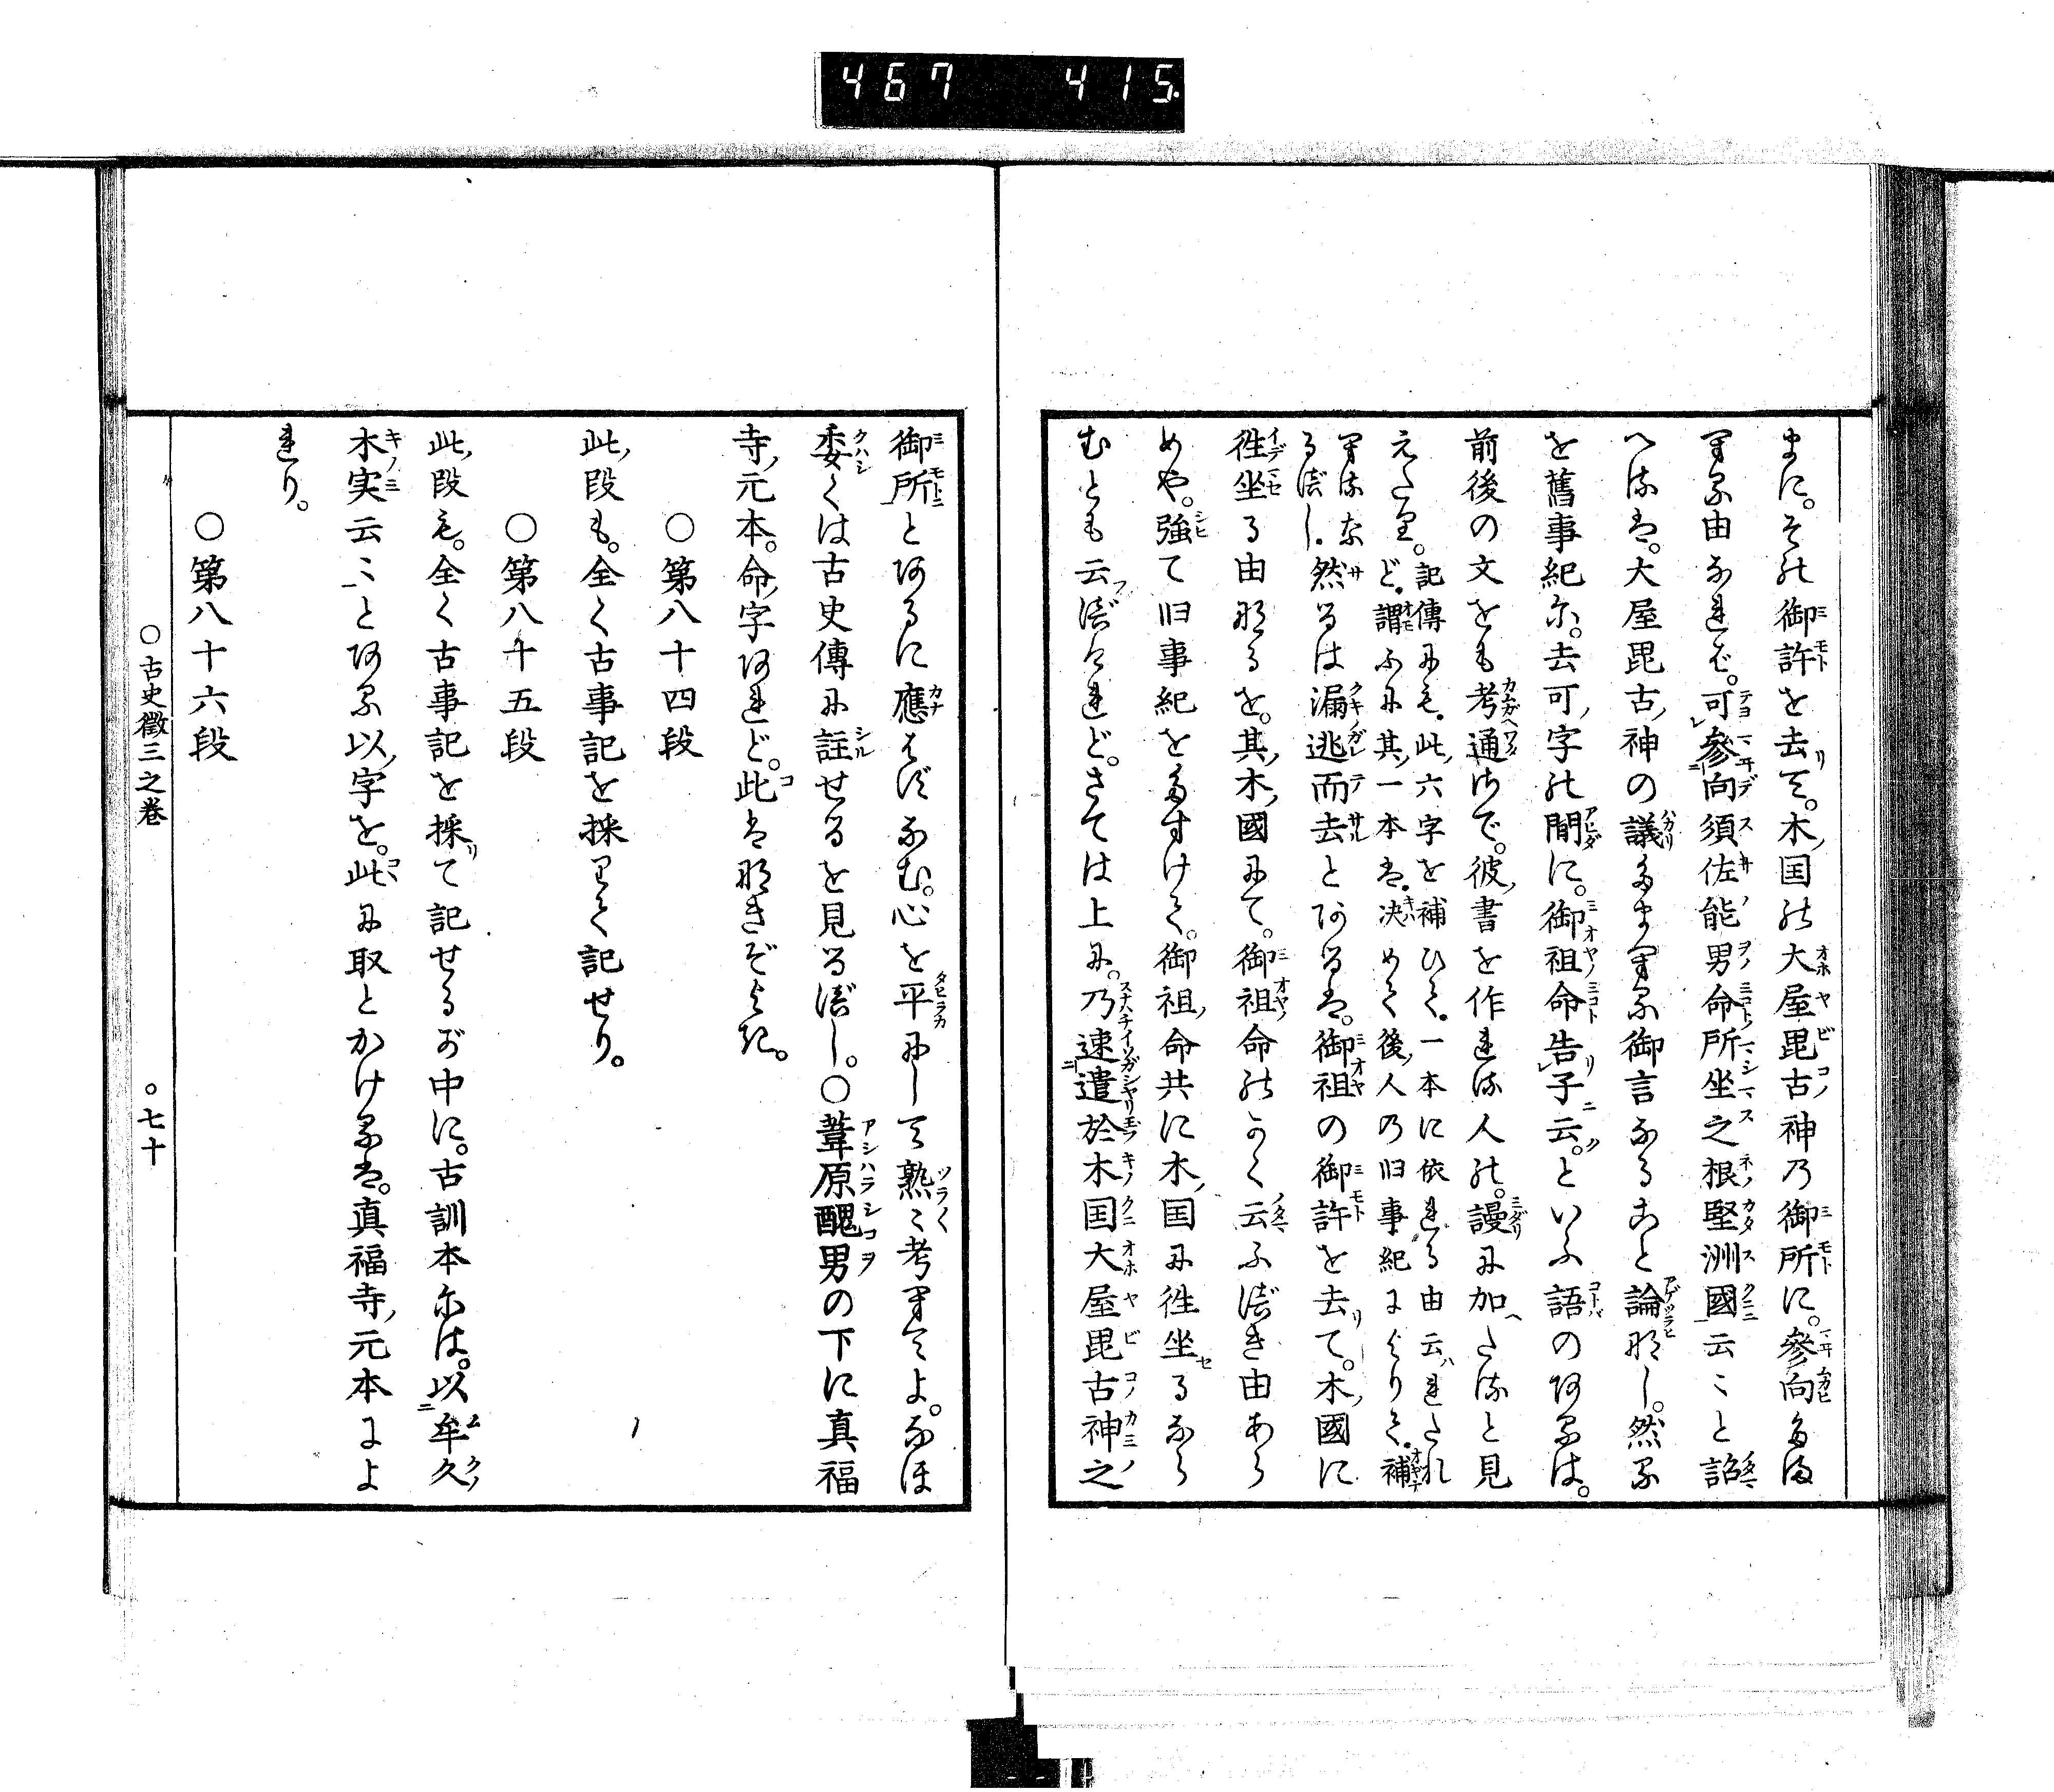 467 415
まに。その御許を去りて。木ノ国の大屋毘古神乃御所に。參向たま
へる由なれば。可參向須佐能男命所坐之根堅洲國云々と詔
へるは。大屋毘古ノ神の議たまへる御言なること論なし。然る
を舊事紀に。去可ノ字の間に。御祖命告子云。といふ語のあるは。
前後の文をも考通さで。彼ノ書を作れる人の。謾に加へたると見
えたり。
記傳にも。此ノ六字を補ひて。一本に依れる由云ハれたれ
ど。謂ふに其ノ一本は。决めて後ノ人の旧事紀によりて。補
へるなるべし。
然るは漏逃而去とあるは。御祖の御許を去りて。木ノ國に
徃坐る由なるを。其ノ木ノ國にて。御祖命のかく云ふべき由あら
めや。強て旧事紀をたすけて。御祖ノ命共に木ノ国に徃坐るなら
むとも云べけれど。さては上に。乃速遣於木国大屋毘古神之
御所とあるに應はずなむ。心を平にして熟々考へてよ。なほ
委くは古史傳に註せるを見るべし。○葦原醜男の下に真福
寺ノ元本。命ノ字あれど。此は なきぞよき。
○第八十四段
此ノ段も。全く古事記を採りて記せり。
○第八十五段
此ノ段も。全く古事記を採りて記せるが中に。古訓本には。以牟久
木実云々とある以ノ字を。此に取とかけるは。真福寺ノ元本によ
れり。
○第八十六段
○古史徴三之巻 ○七十